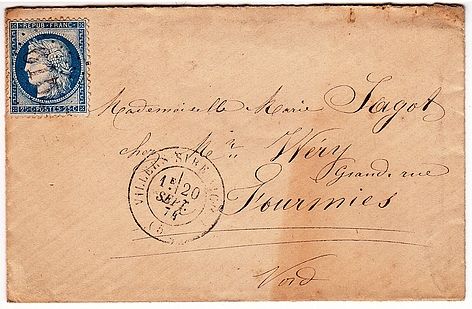 REPUB·FRANC·
25 C·POSTES·25 C·
Mademoiselle Marie Jagot
chez Mr Wery
Grande rue
Fourmies
Nord
VILLERS
1E 20
SEPT.
74